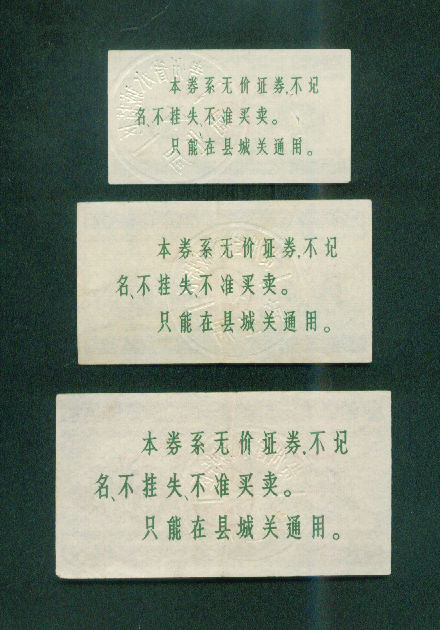 本券系无价证券,不记
名、不挂失、不准买卖。
只能在县城关通用。
本券系无价证券,不记
名、不挂失、不准买卖。
只能在县城关通用。
本券系无价证券,不记
名、不挂失、不准买卖。
只能在县城关通用。